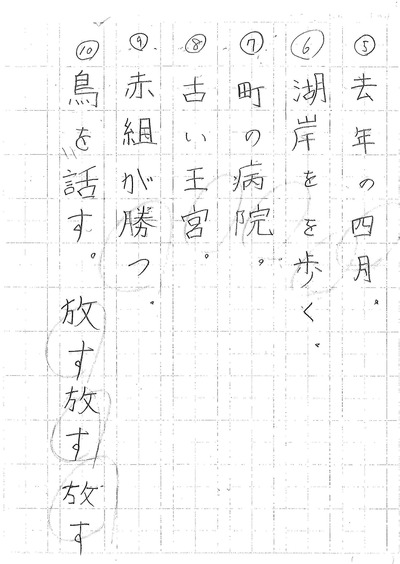 ⑤去年の四月。
⑥湖岸をを歩く。
⑦町の病院。
⑧古い王宮。
⑨赤組が勝つ。
⑩鳥を話す。 放す放す放す